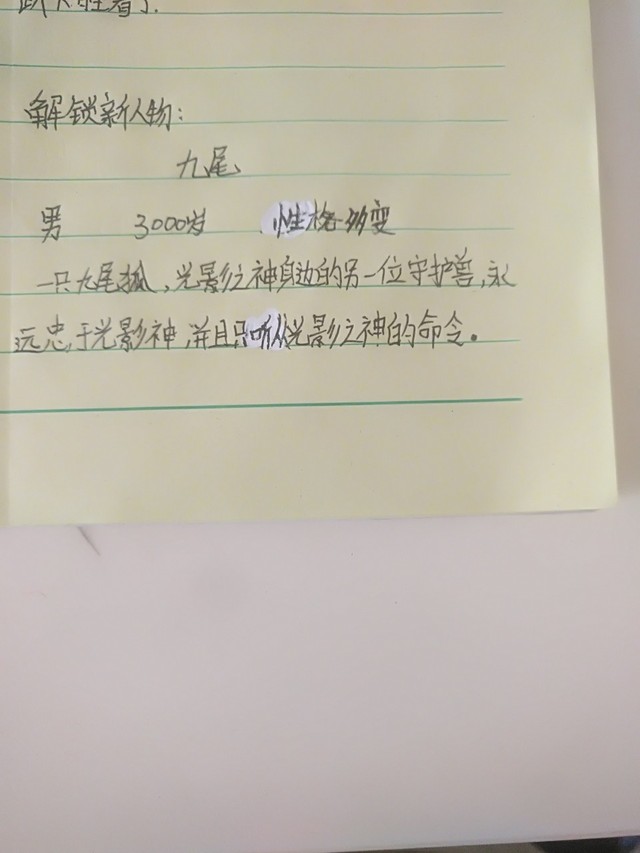 解锁新人物：
九尾
男 3000岁 性格多变
一只九尾狐，光影之神身边的另一位守护兽，永
远忠于光影神，并且只听从光影之神的命令。